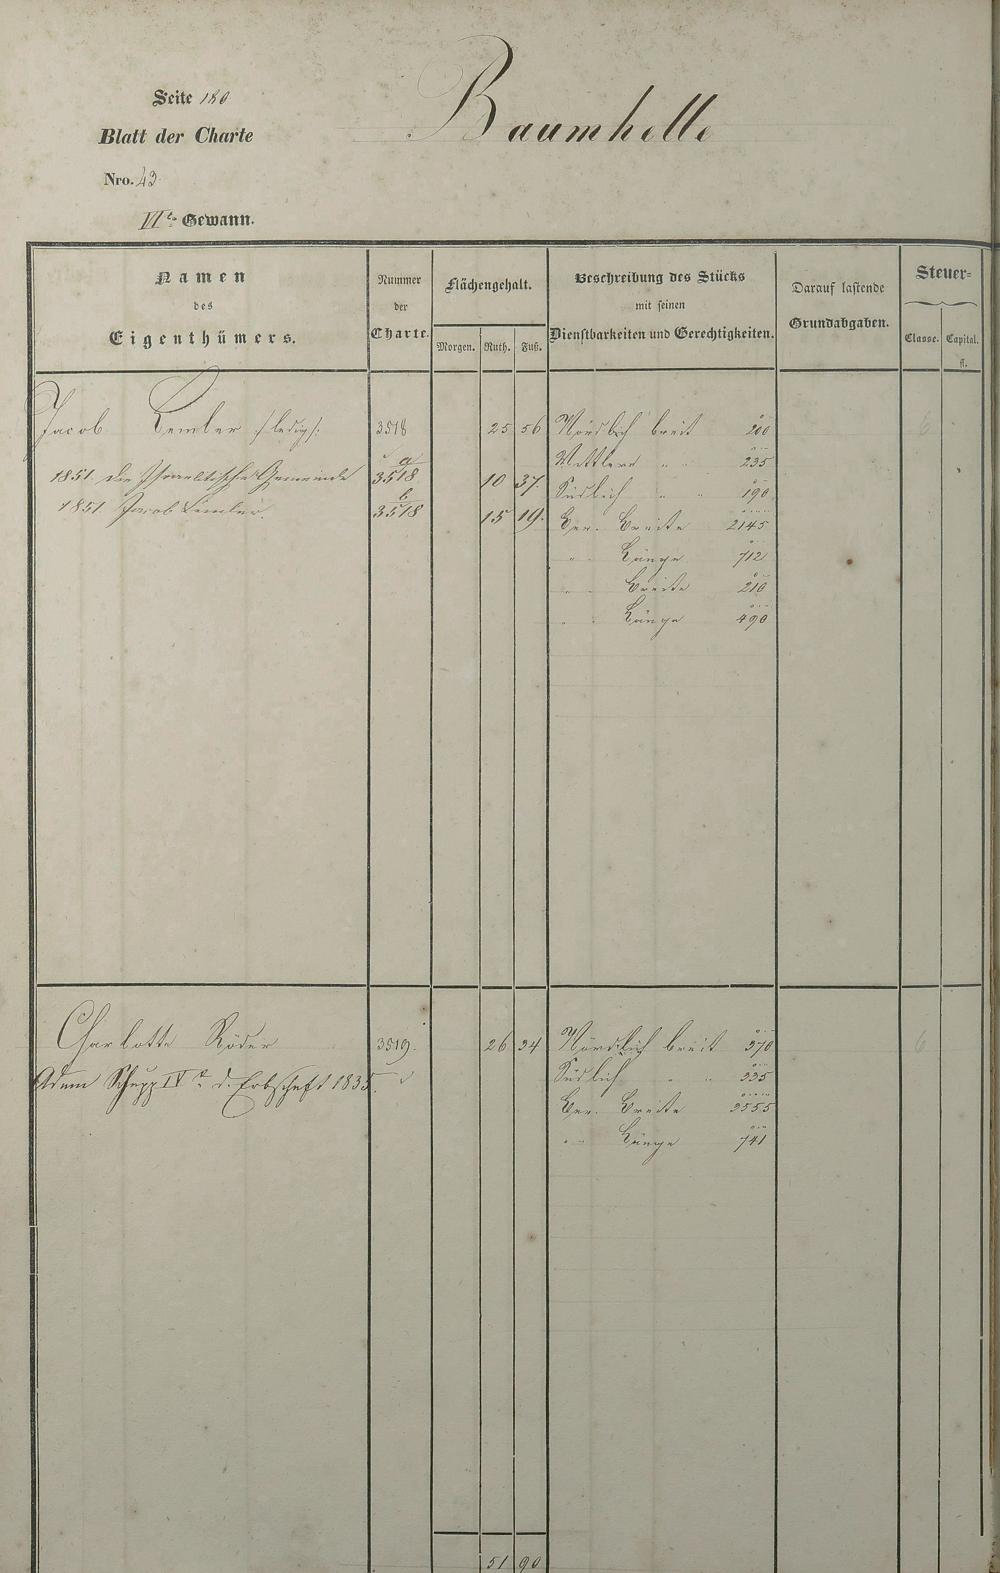 Seite 180
Blatt der Charte
Nro. 43
VIte Gewann.
Baumhelle
Namen des Eigenthümers.
Nummer der Charte.
Flächengehalt.
Morgen. Ruth. Fuß.
Beschreibung des Stücks mit seinen Dienstbarkeiten und Gerechtigkeiten.
Darauf lastende Grundabgaben.
Steuer-
Classe. Capital. fl.
Jacob Lemler /: ledig :/ 3518 25 56 Nördlich breit 200
Mittlere " " 235
1851. die Israelitische Gemeinde 3518 a 10 37. Südlich " " 190
1851. Jacob Lemler. 3518 b 15 19. Ver. Breite 2145
" " Länge 712
" " Breite 210
" " Länge 490
Charlotte Röder 3519. 26 34 Nördlich breit 370
Adam Schupp IVte d. Erbschaft 1835. Südlich " " 335
Ver. Breite 3555
" " Länge 741
51 90